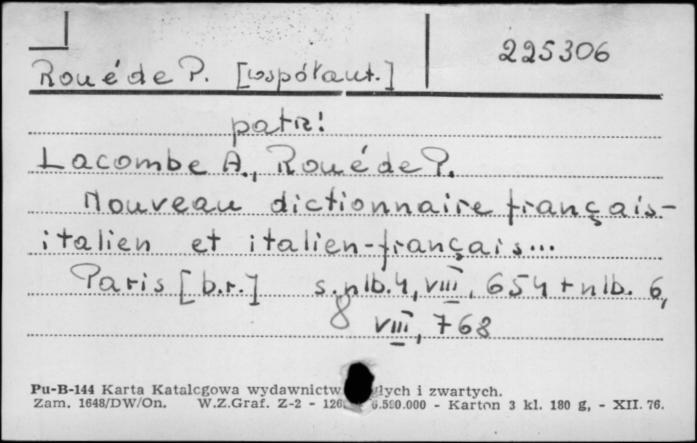 225306
Roué de P. [współaut.]
patrz!
Lacombe A., Roué de P.
Nouveau dictionnaire français-
italien et italien-français...
Paris [b.r.] s. nlb. 4, VIII, 654 + nlb. 6,
8 VIII, 768
Pu-B-144 Karta Katalogowa wydawnictw i zwartych.
Zam. 1648/DW/On. W.Z.Graf. Z-2 - - Karton 3 kl. 180 g, - XII. 76.